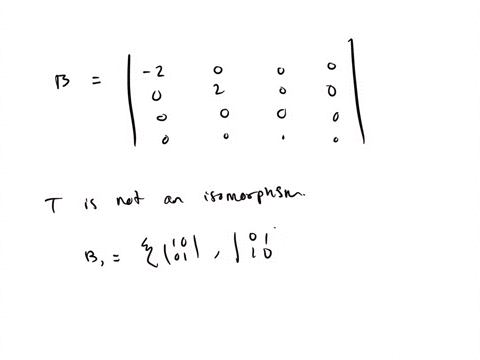 B = | -2 0 0 0 |
0 2 0 0
0 0 0 0
0 0 0 0
T is not an isomorphism.
B₁ = { | 1 0 | , | 0 1
0 1 1 0